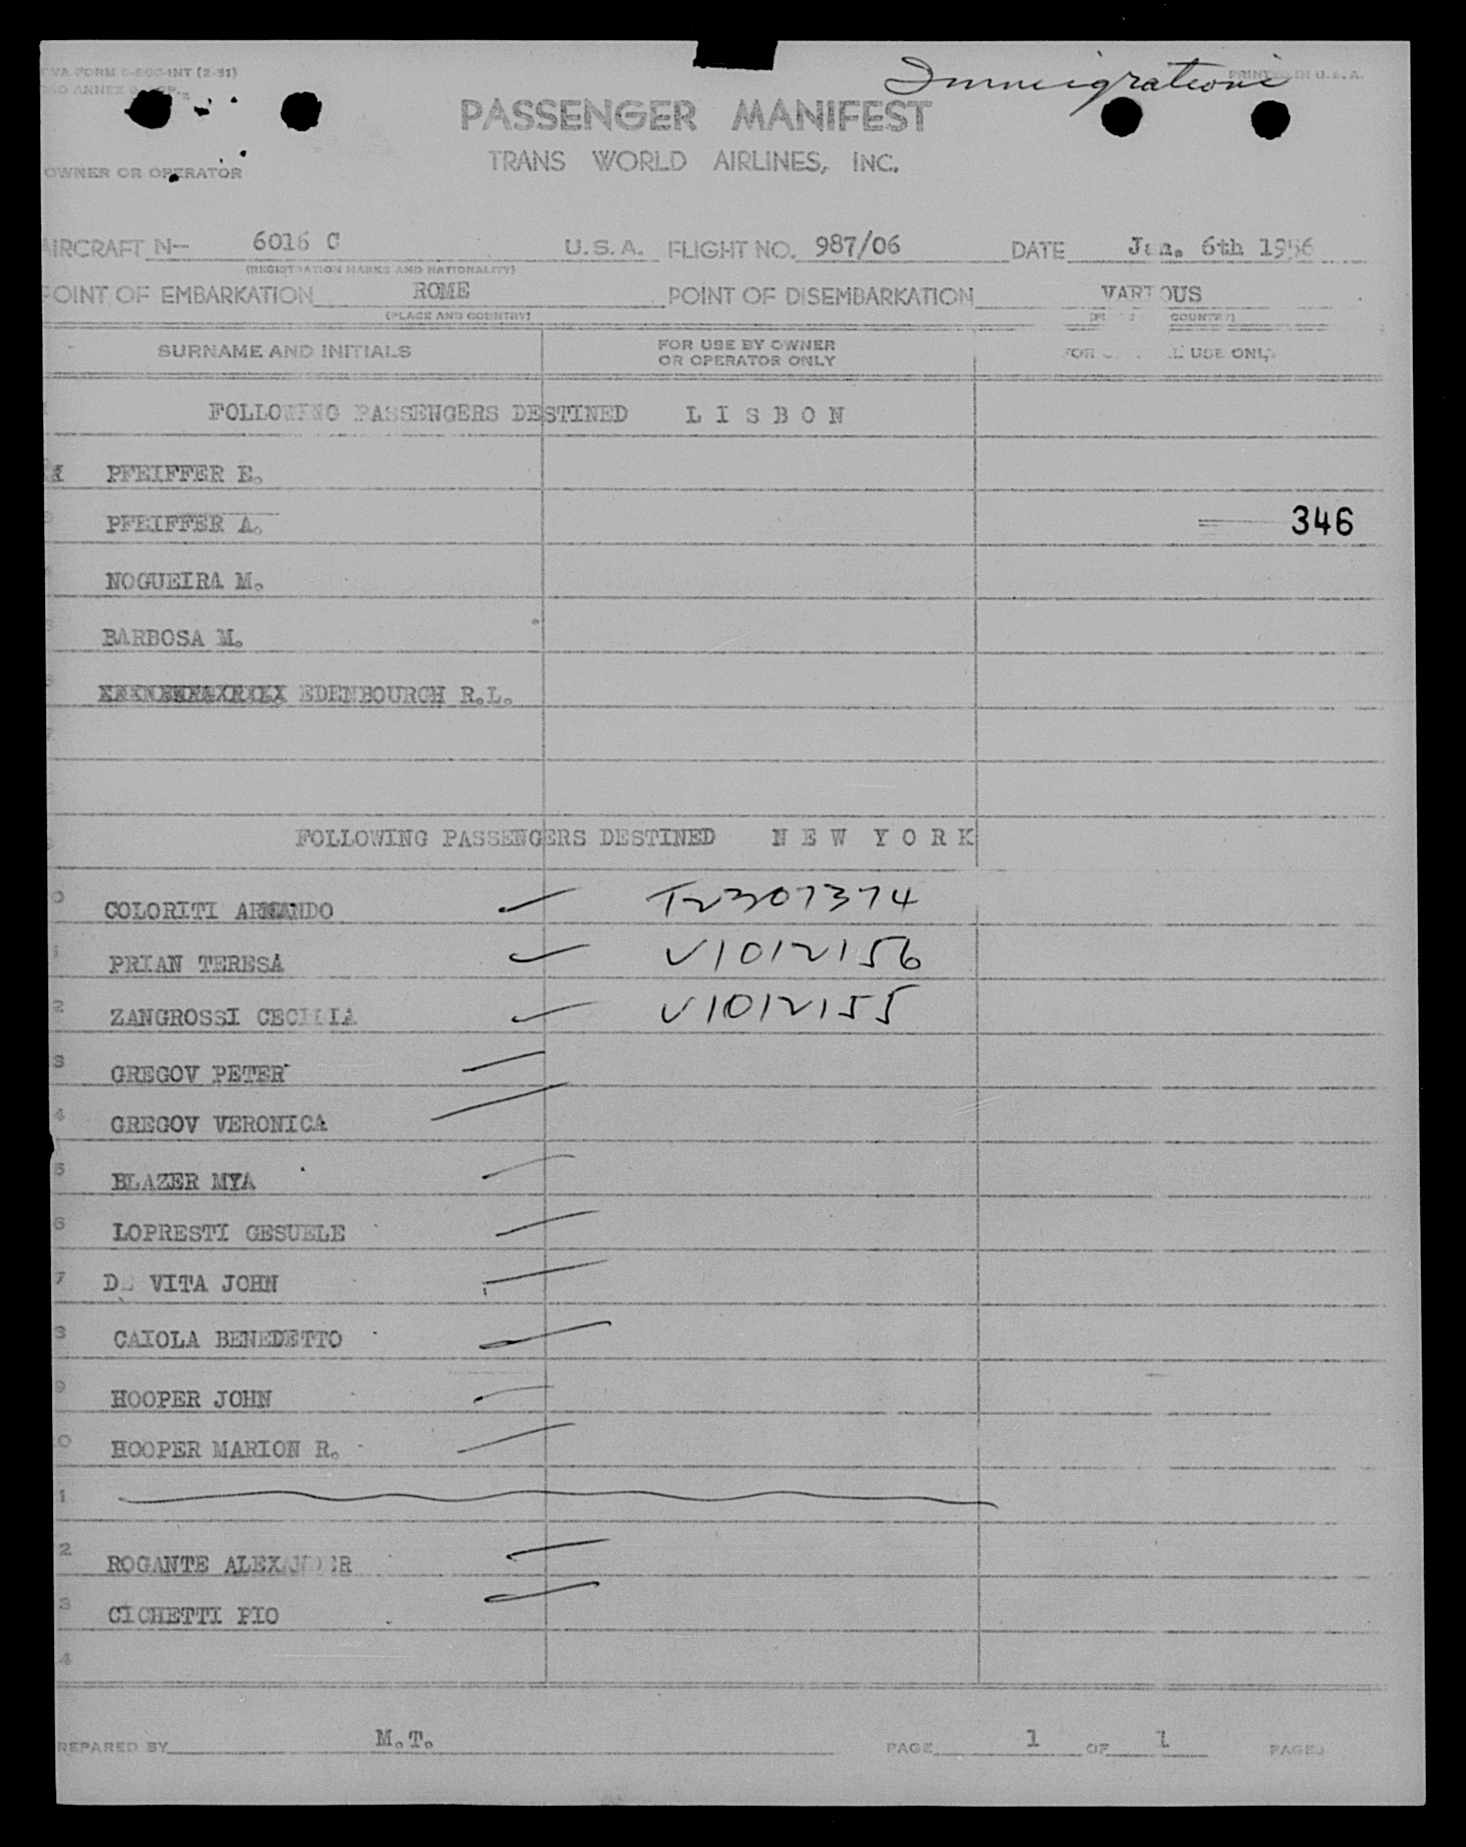 TWA FORM (2-51)
Immigration
PRINTED IN U.S.A.
PASSENGER MANIFEST
TRANS WORLD AIRLINES, INC.
OWNER OR OPERATOR
AIRCRAFT N-- 6016 C U.S.A. FLIGHT NO. 987/06 DATE Jan. 6th 1956
(REGISTRATION MARKS AND NATIONALITY)
POINT OF EMBARKATION ROME POINT OF DISEMBARKATION VARIOUS
(PLACE AND COUNTRY) COUNTRY)
SURNAME AND INITIALS FOR USE BY OWNER OR OPERATOR ONLY FOR USE ONLY
FOLLOWING PASSENGERS DESTINED L I S B O N
PFEIFFER E.
PFEIFFER A. 346
NOGUEIRA M.
BARBOSA M.
EDENBOURGH R.L.
7
FOLLOWING PASSENGERS DESTINED N E W Y O R K
0 COLORITI ARMANDO ✓ T2307374
1 PRIAN TERESA ✓ V1012156
2 ZANGROSSI CECILIA ✓ V1012155
3 GREGOV PETER
4 GREGOV VERONICA
5 BLAZER MYA
6 LOPRESTI GESUELE
7 DE VITA JOHN
8 CAIOLA BENEDETTO
9 HOOPER JOHN
0 HOOPER MARION R.
1
2 ROGANTE ALEXANDER
3 CICHETTI PIO
4
PREPARED BY M.T. PAGE 1 OF 1 PAGES